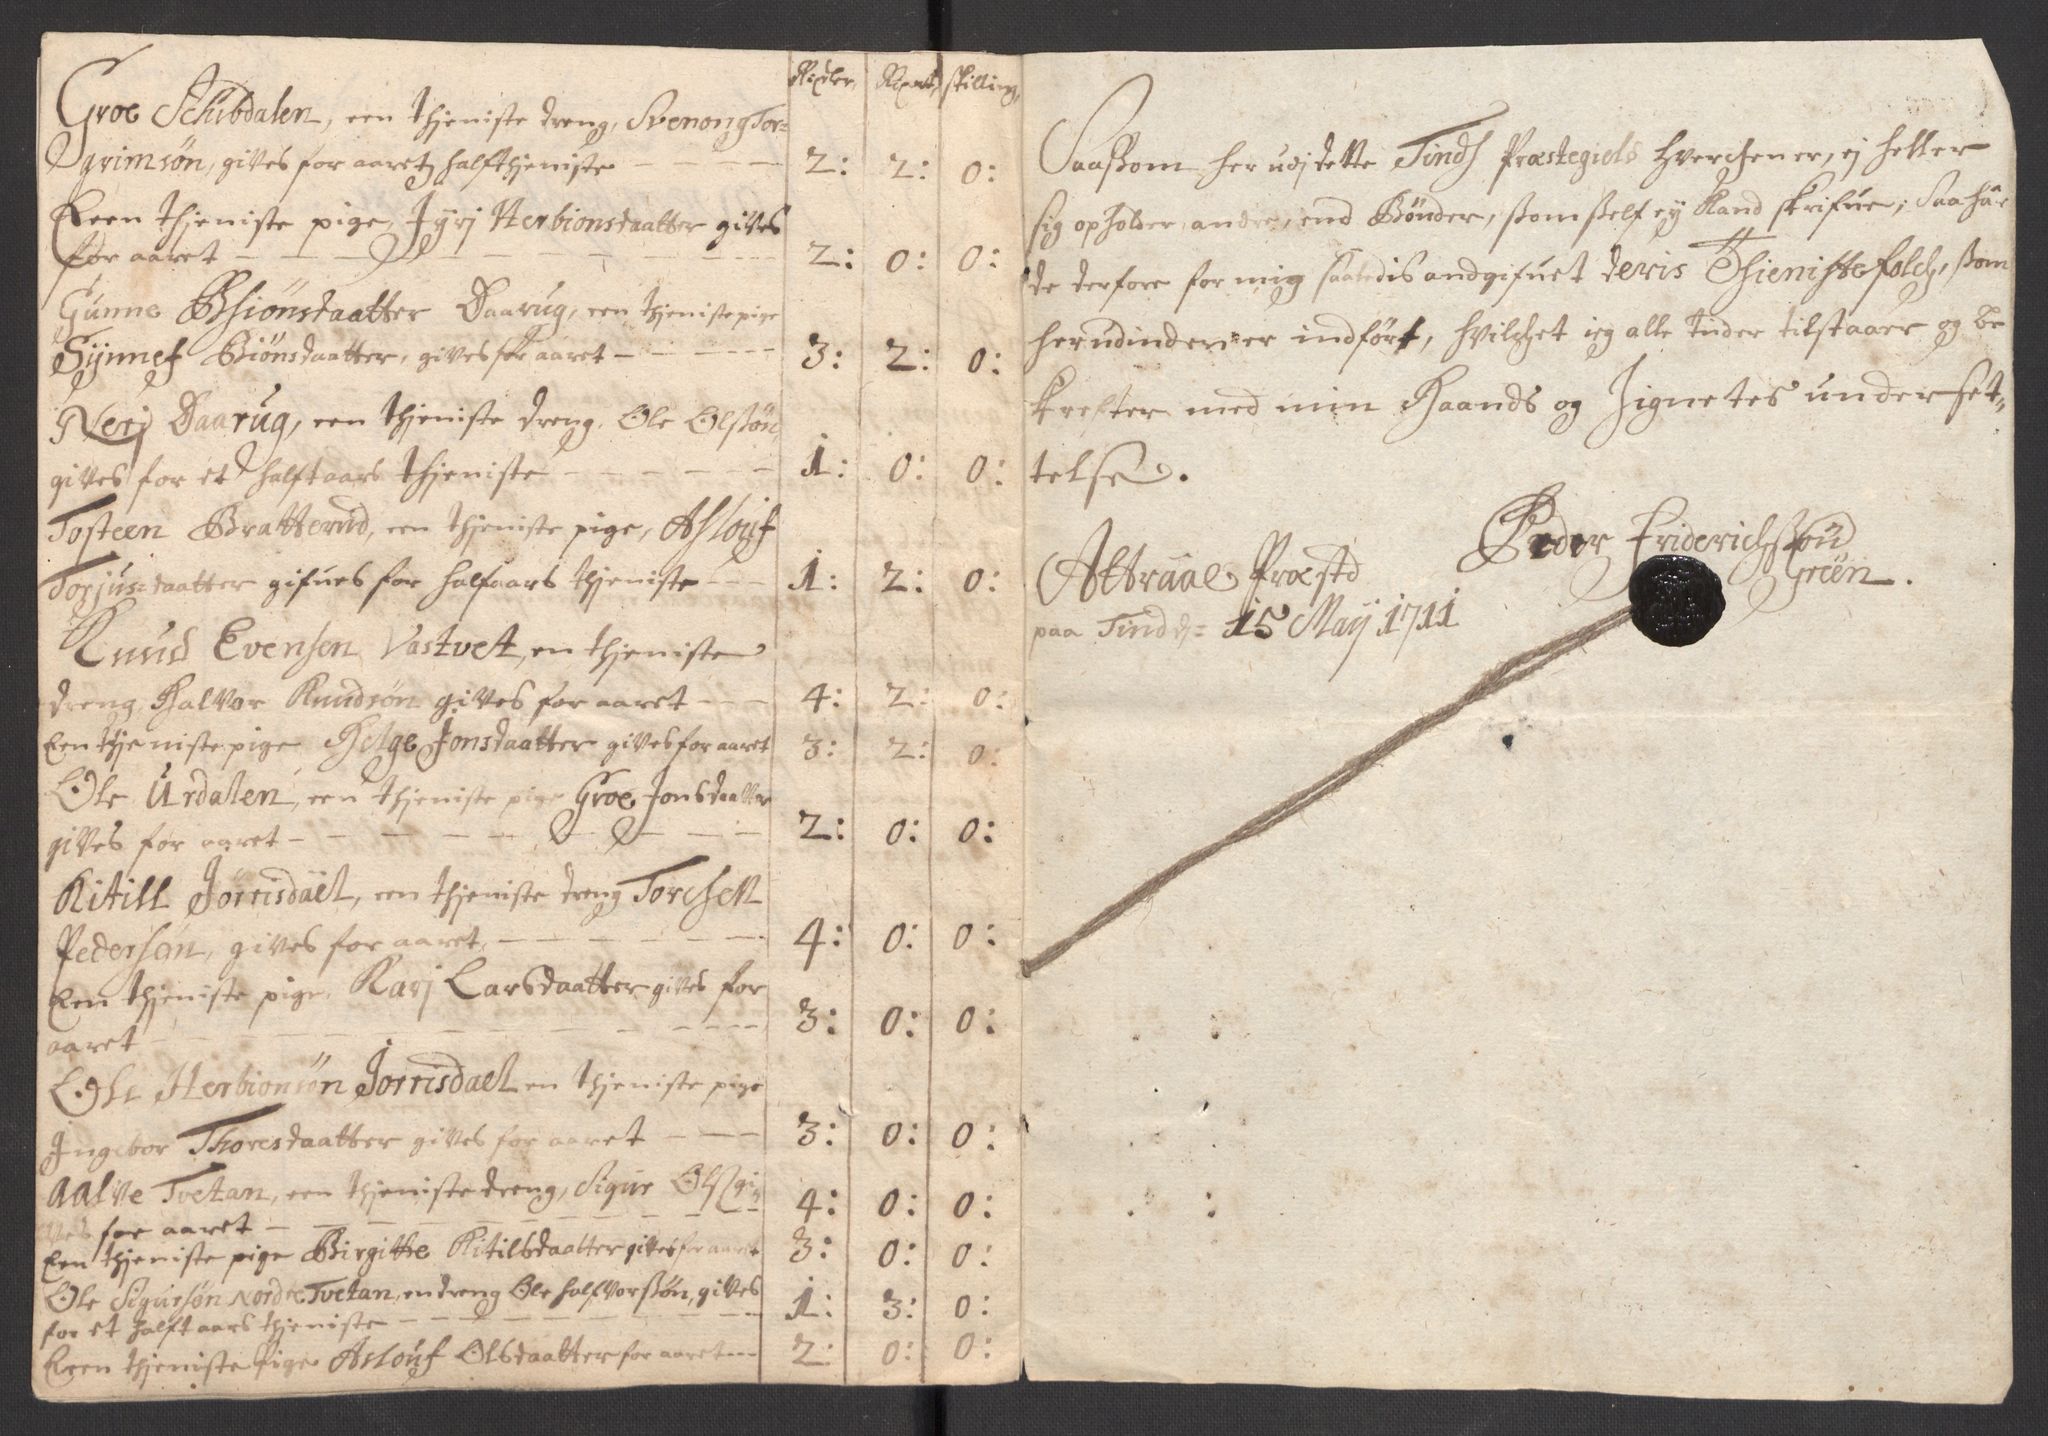 Rixdler, Rixort, skilling,
Groe Schibdalen, een thjeniste dreng, Svenong Tor=
grimsøn, gives for aaretz halfthjeniste — — — — 2: 2: 0:
Een thjeniste pige, Jyrj Herbionsdaatter gives
for aaret — — — — — — — — 2: 0: 0:
Gunne Bhiönsdaatter Daarug, een thjeniste pige
Synnef Biönsdaatter, gives for aaret — — — — 3: 2: 0:
Nerj Daarug, een thjeniste dreng, Ole Olssøn
gives for et halft aars thjeniste — — — — — 1: 0: 0:
Tosteen Bratterud, een thjeniste pige, Aslouf
Torjusdaatter gifues for halfaars thjeniste — — — 1: 2: 0:
Knud Evensen Vastvet, en thjeniste
dreng, Halvor Knudsøn gives for aaret — — — 4: 2: 0:
Een thjeniste pige Helge Jonsdaatter gives for aaret 3: 2: 0:
Ole Urdalen, een thjeniste pige Groe Jonsdaatter
gives for aaret — — — — — — — 2: 0: 0:
Kitill Jorrisdalt, een thjeniste dreng Torchell
Pedersøn, gives for aaret, — — — — — — 4: 0: 0:
Een thjeniste pige, Karj Larsdaatter gives for
aaret — — — — — — — — 3: 0: 0:
Ole Herbionsøn Jorrisdael en thjeniste pige
Ingebor Thoresdaatter gives for aaret — — — 3: 0: 0:
Aalve Tvetan, een thjeniste dreng, Sigur Ols gi
ves for aaret — — — — — — — — 4: 0: 0:
Een thjeniste pige Birgitte Kitilsdaatter gives for aaret 3: 0: 0:
Ole Sigursøn Nordre Tvetan, en dreng Ole Halfvorssøn, gives
for et halft aars thjeniste — — — — — — 1: 3: 0:
Een thjeniste Pige Aslouf Olsdaatter for aaret — — 2: 0: 0:
Saassom her udj dette Tindz Præstegields hverchen er, ej heller
sig opholder andre, end Bönder, som sself ey kand skrifue; Saa haf
de derfore for mig saaledis andgifuet deris Thienistefolch, som
herudinden er indført, hvilchet ieg alle tider tilstaar og be
krefter med min Haands og Zignetes underset=
telse.
Attraae Præstd
paa Tindz= 15 Maij 1711
Peder Friderichssøn
Green.